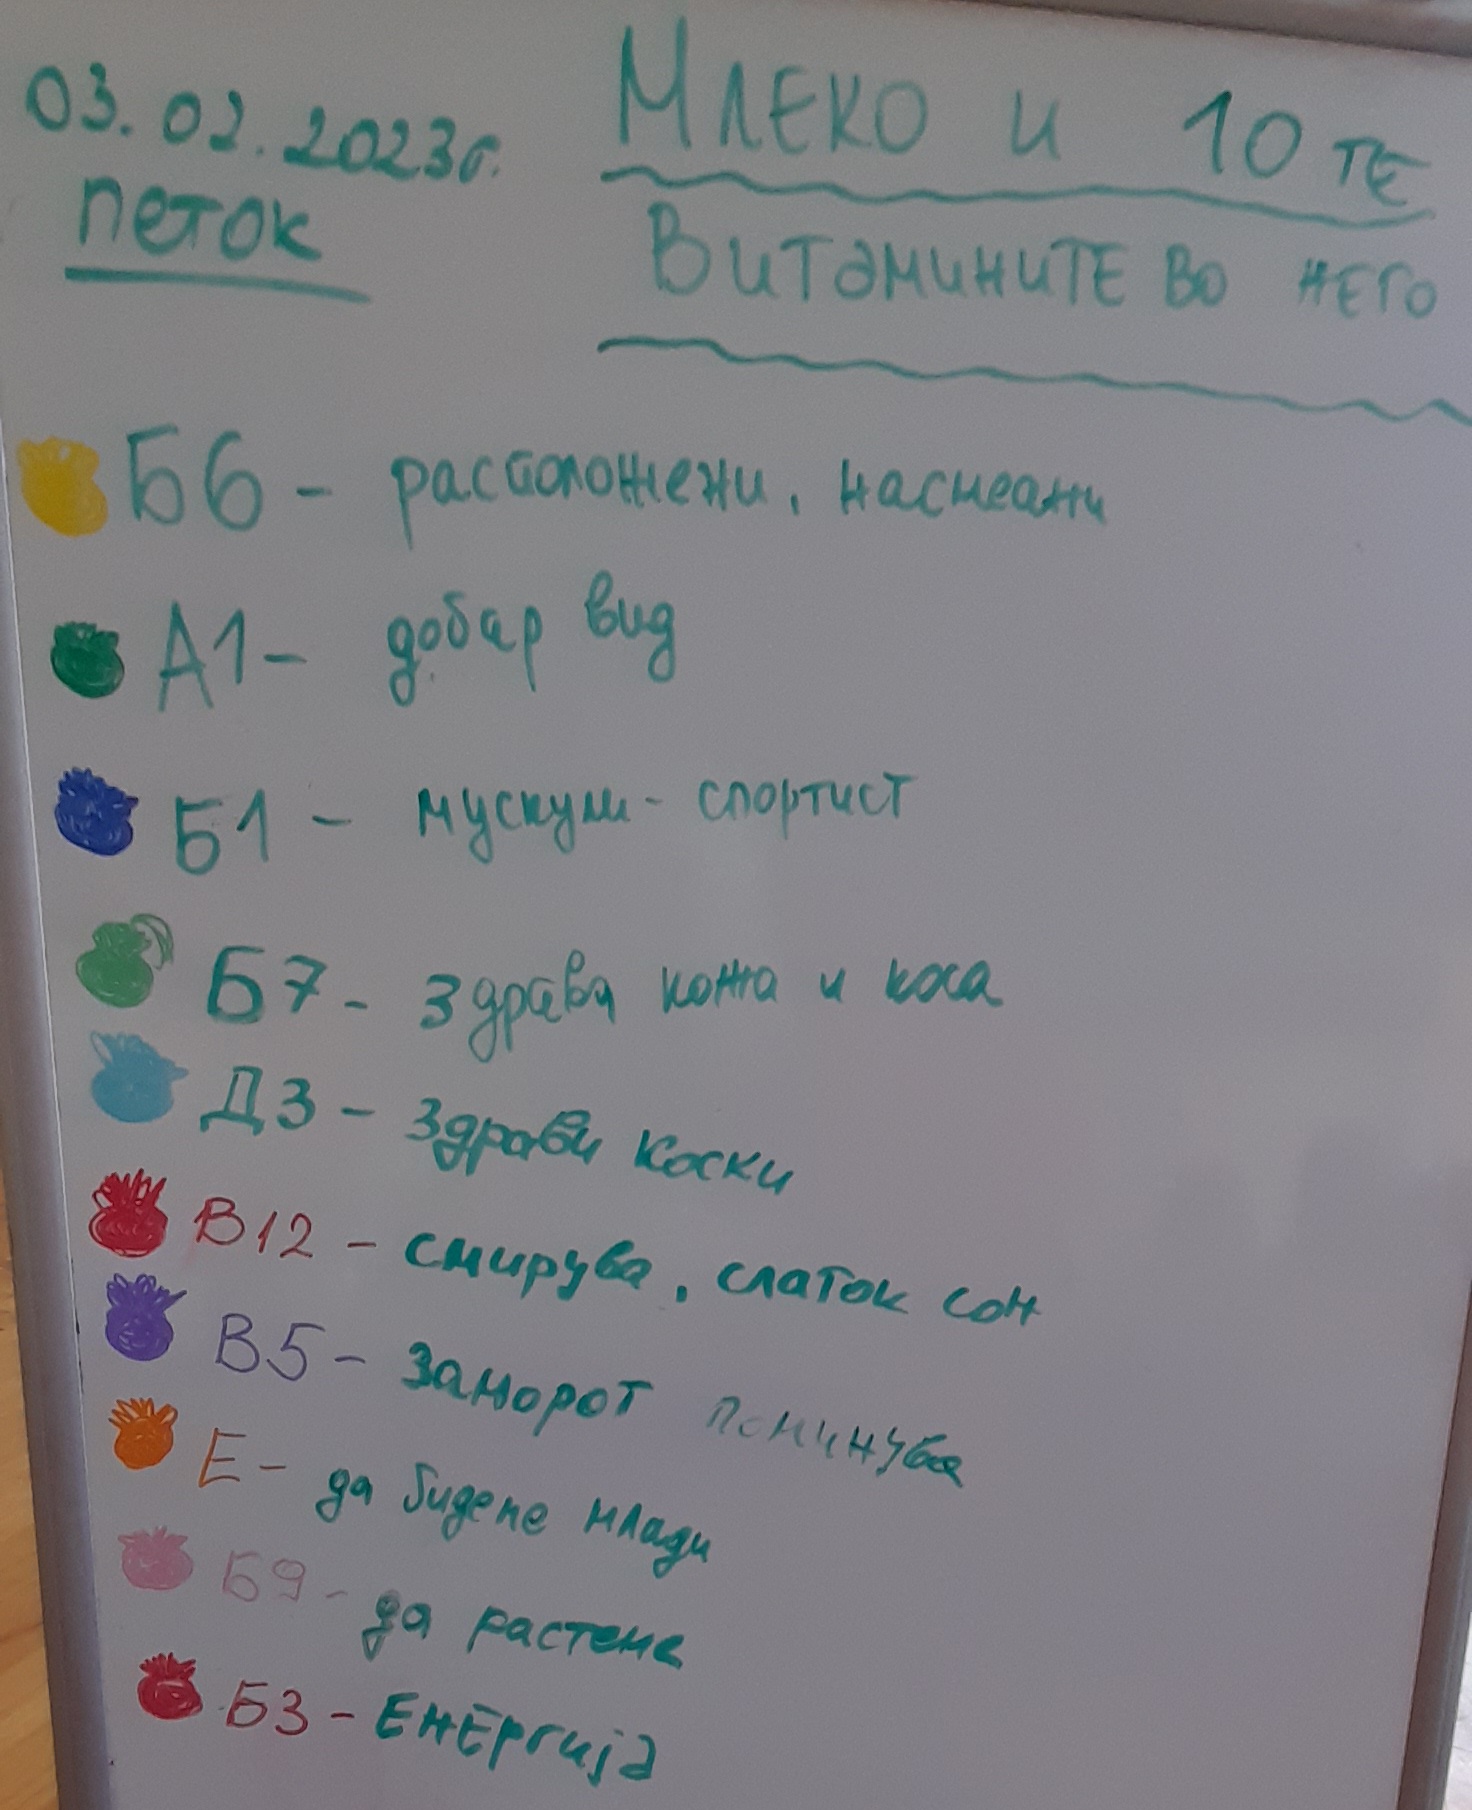 03.02.2023г.
петок
Млеко и 10 те
Витамините во него
Б6 - расположени, насмеани
А1 - добар вид
Б1 - мускули - спортист
Б7 - здрава кожа и коса
Д3 - здрави коски
В12 - смирува, слаток сон
В5 - заморот поминува
Е - да бидеме млади
Б9 - да растеме
Б3 - Енергија